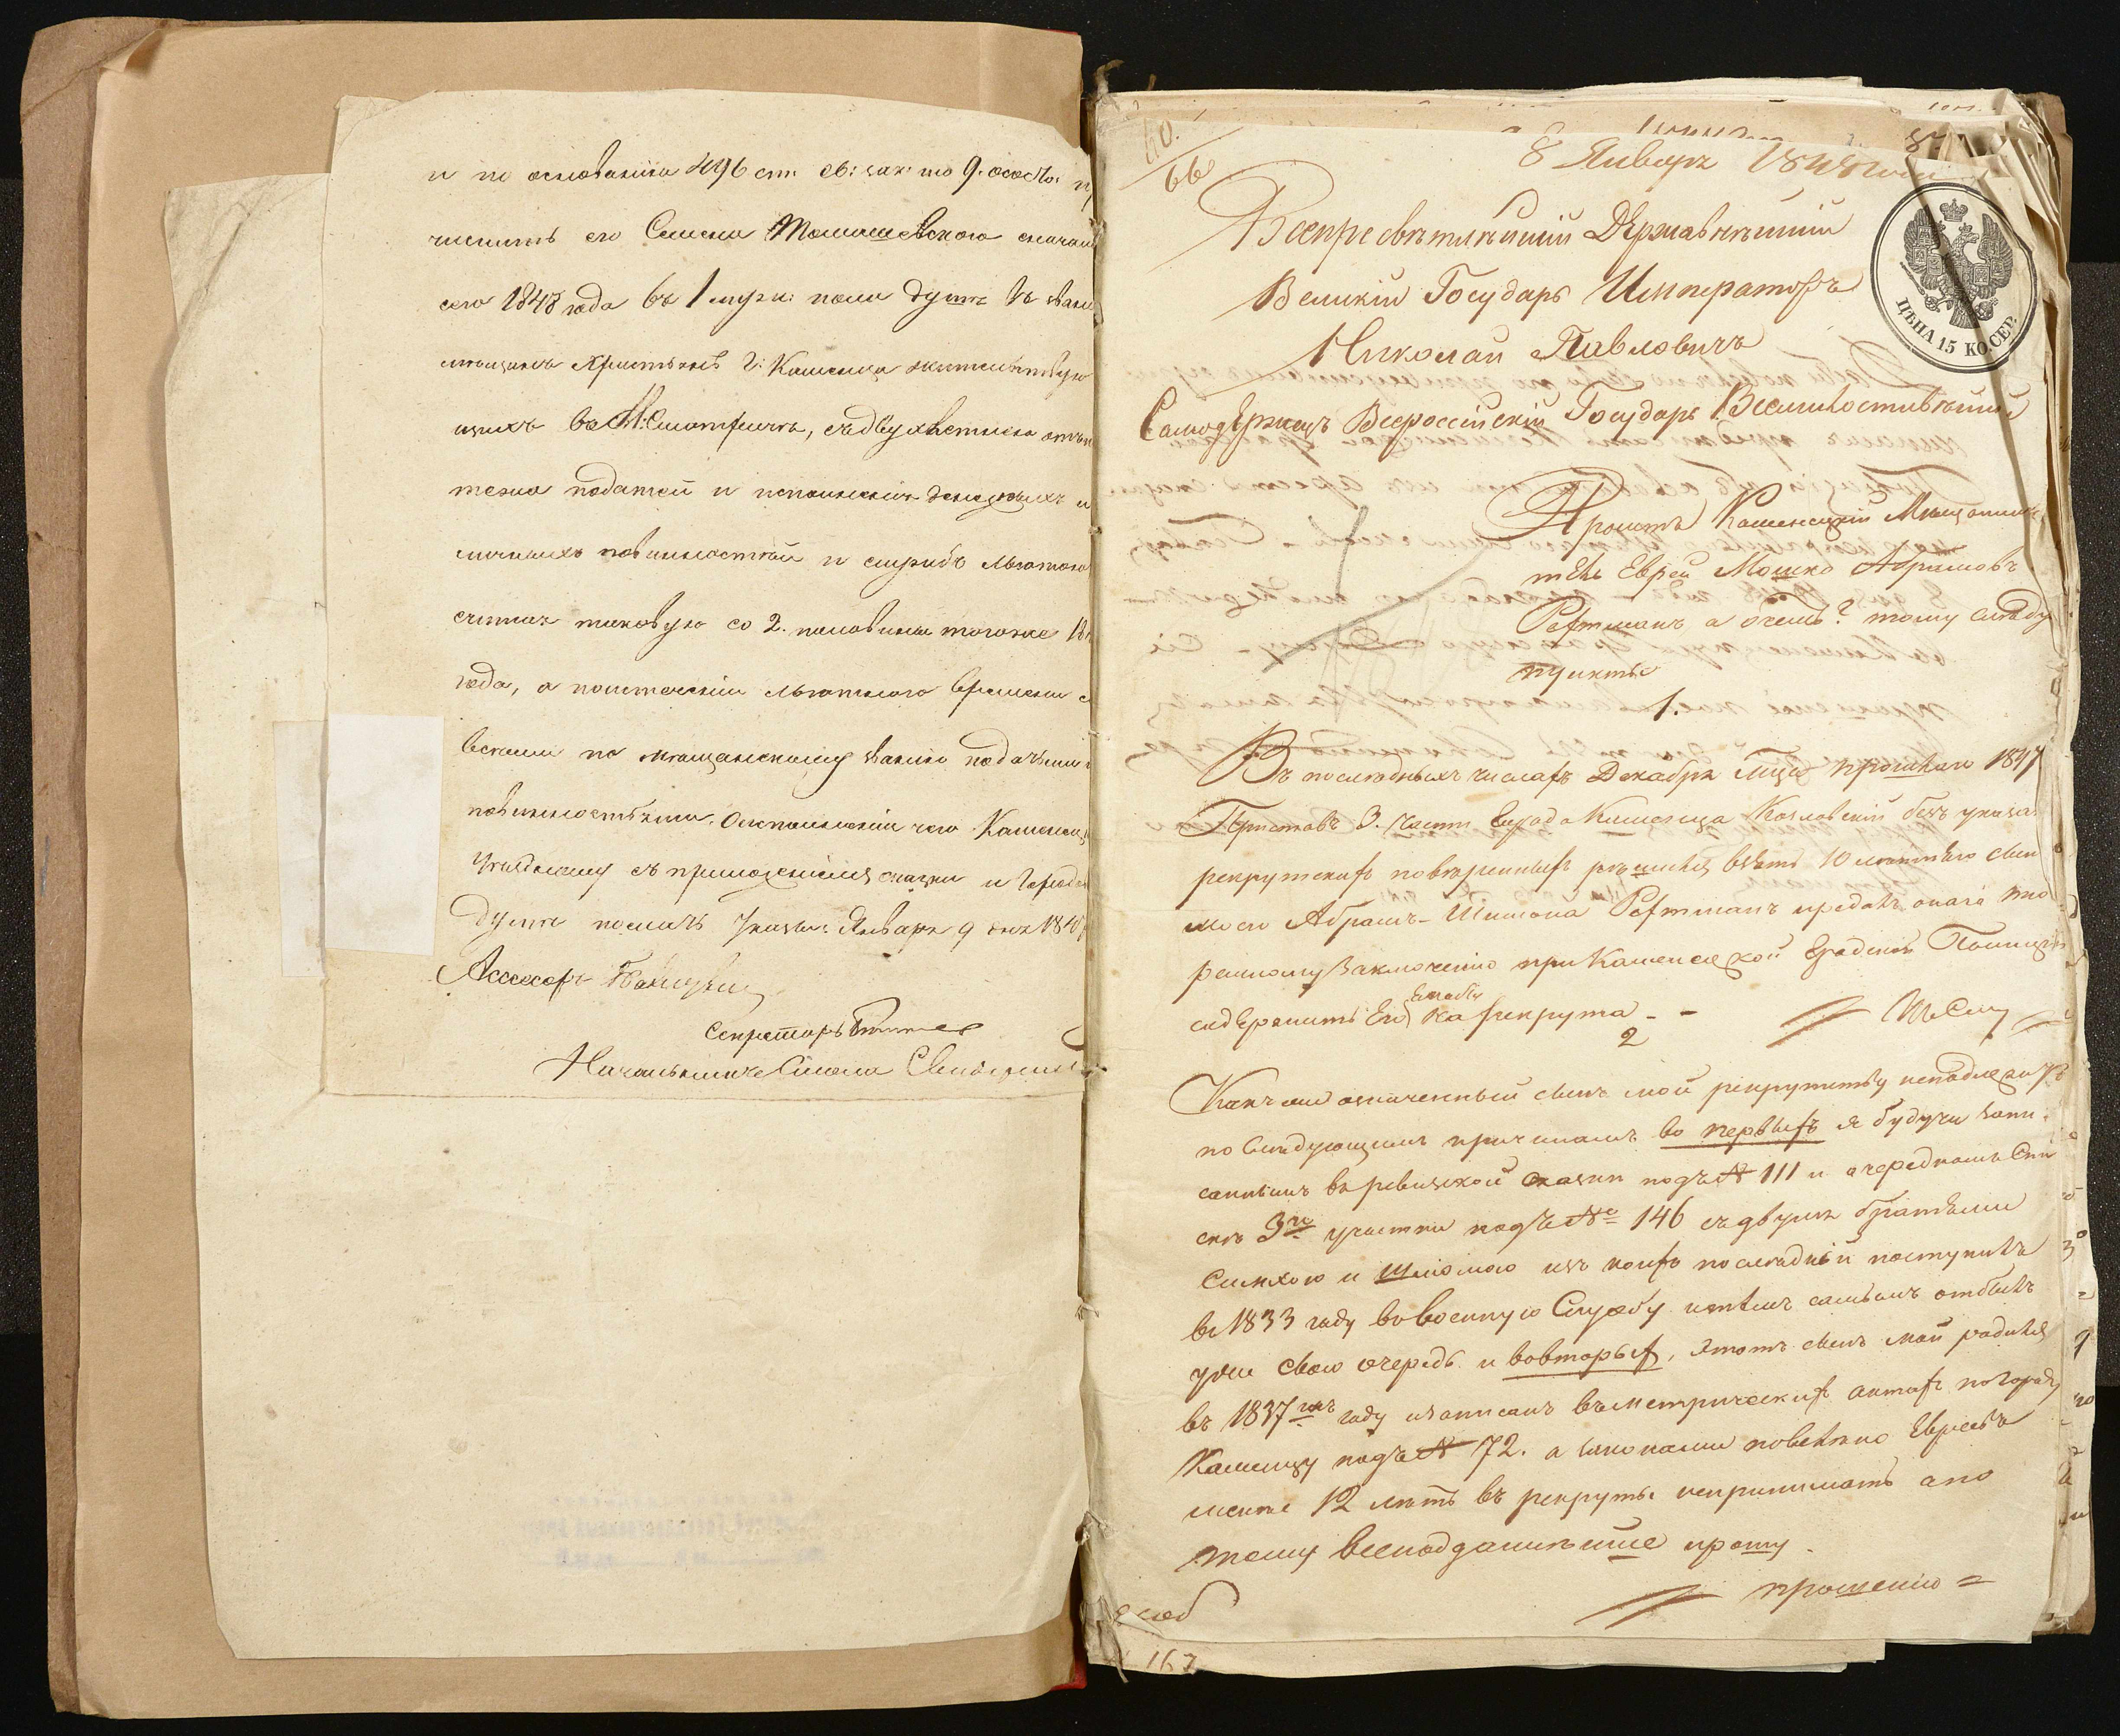 и по основанию 496 ст. св: зак: то 9. о сост:
числить его Семена Томашевского сначала
сего 1848 года въ 1 мужс: пола душѣ въ званіи
мѣщанъ христіянъ г: Каменца жительствую
щихъ въ М. Смотричѣ, съ двухлѣтнею отъ п
тежа податей и исполненія денежныхъ и
личныхъ повинностей и службъ льготою
считая таковую со 2. половины тогоже 18
года, а по истеченіи льготного времени с
всеми по мѣщанскому званію податьми и
повинностьми. О исполненіи чего Каменец
Уѣздному съ приложеніемъ сказки и Городс
Думѣ послать Указы: Января 9 дня 184
Ассесоръ
Секретарь
Начальникъ Стола
66
8 Января 1848 года
Всепресвѣтлѣйшій Державнѣйшій
Великій Государь Императоръ
Николай Павловичъ
Самодержецъ Всероссійскій Государь Всемилостивѣйшій
ЦѢНА 15 КО. СЕР.
Проситъ Каменецкій Мѣщанинъ
Еврей Мошко Абрамовъ
Рефтманъ а о чемъ? тому слѣду
пункты
1.
Въ послѣднихъ числахъ Декабря Мца прошлаго 1847
Приставъ 3. части Города Каменца Козловскій безъ указа
рекрутскихъ повѣренныхъ взять 10 лѣтнего сын
моего Абрамъ-Шимона Рефтманъ предалъ онаго тю
ремному Заключенію при Каменецкой Градской Полиціи
содержить Его какъ бы за рекрута - -
2
Какъ означенный сынъ мой рекрутству неподлежитъ
по слидующимъ причинамъ во первыхъ я будучи запи
саннымъ въ ревизской сказки подъ № 111 и очередномъ Спи
скѣ 3го участки подъ № 146 съ двумя братьями
Симхою и Шлiомою изъ коихъ послѣдній поступилъ
въ 1833 году въ военную Службу и тѣмъ самымъ отбылъ
уже свою очередь и вовторыхъ, этотъ сынъ мой родился
въ 1837мъ году и записанъ въ метрическихъ актахъ по городу
Каменцу подъ № 72. а законами повелѣно Евреевъ
менее 12 лѣтъ въ рекруты непринимать а по
тому всеподданнѣйше прошу.
прошенію =
167